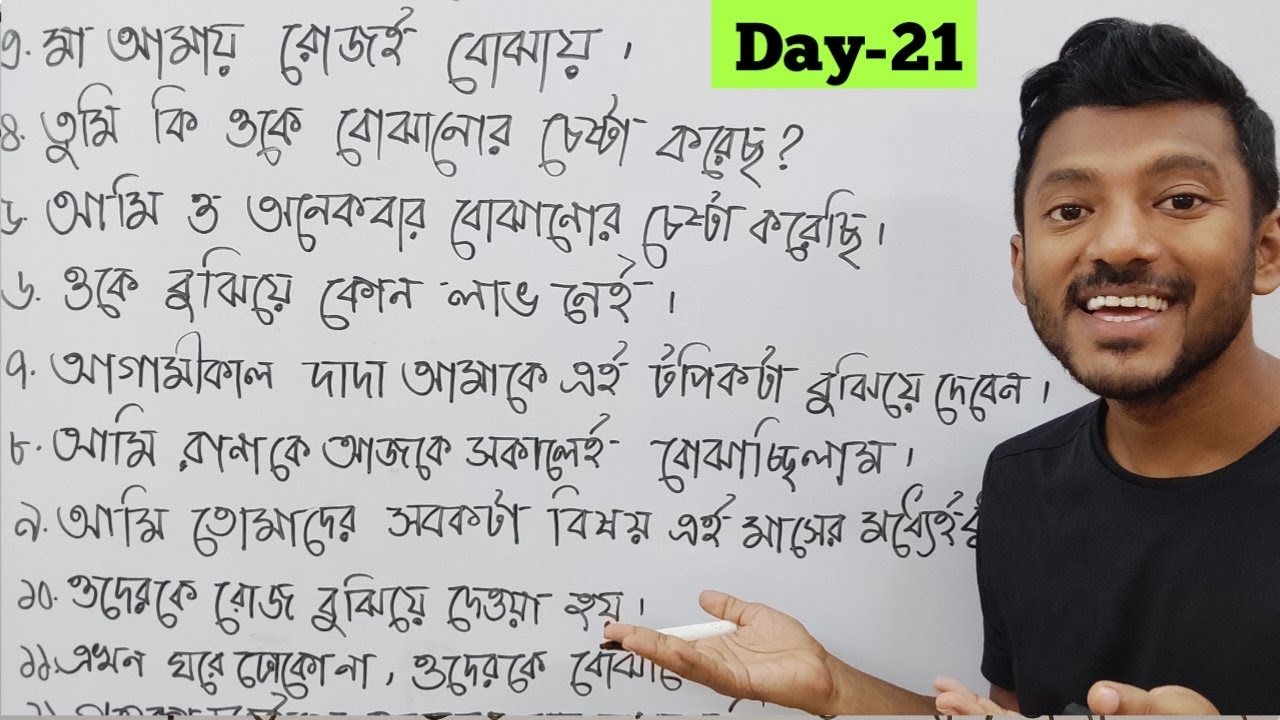 ৩. মা আমায় রোজই বোঝায়।
Day-21
৪. তুমি কি ওকে বোঝানোর চেষ্টা করেছ?
৫. আমি ও অনেকবার বোঝানোর চেষ্টা করেছি।
৬. ওকে বুঝিয়ে কোন লাভ নেই।
৭. আগামীকাল দাদা আমাকে এই টপিকটা বুঝিয়ে দেবেন।
৮. আমি রানাকে আজকে সকালেই বোঝাচ্ছিলাম।
৯. আমি তোমাদের সবকটা বিষয় এই মাসের মধ্যেই
১০. ওদেরকে রোজ বুঝিয়ে দেওয়া হয়।
১১. এখন ঘরে ঢোকো না, ওদেরকে